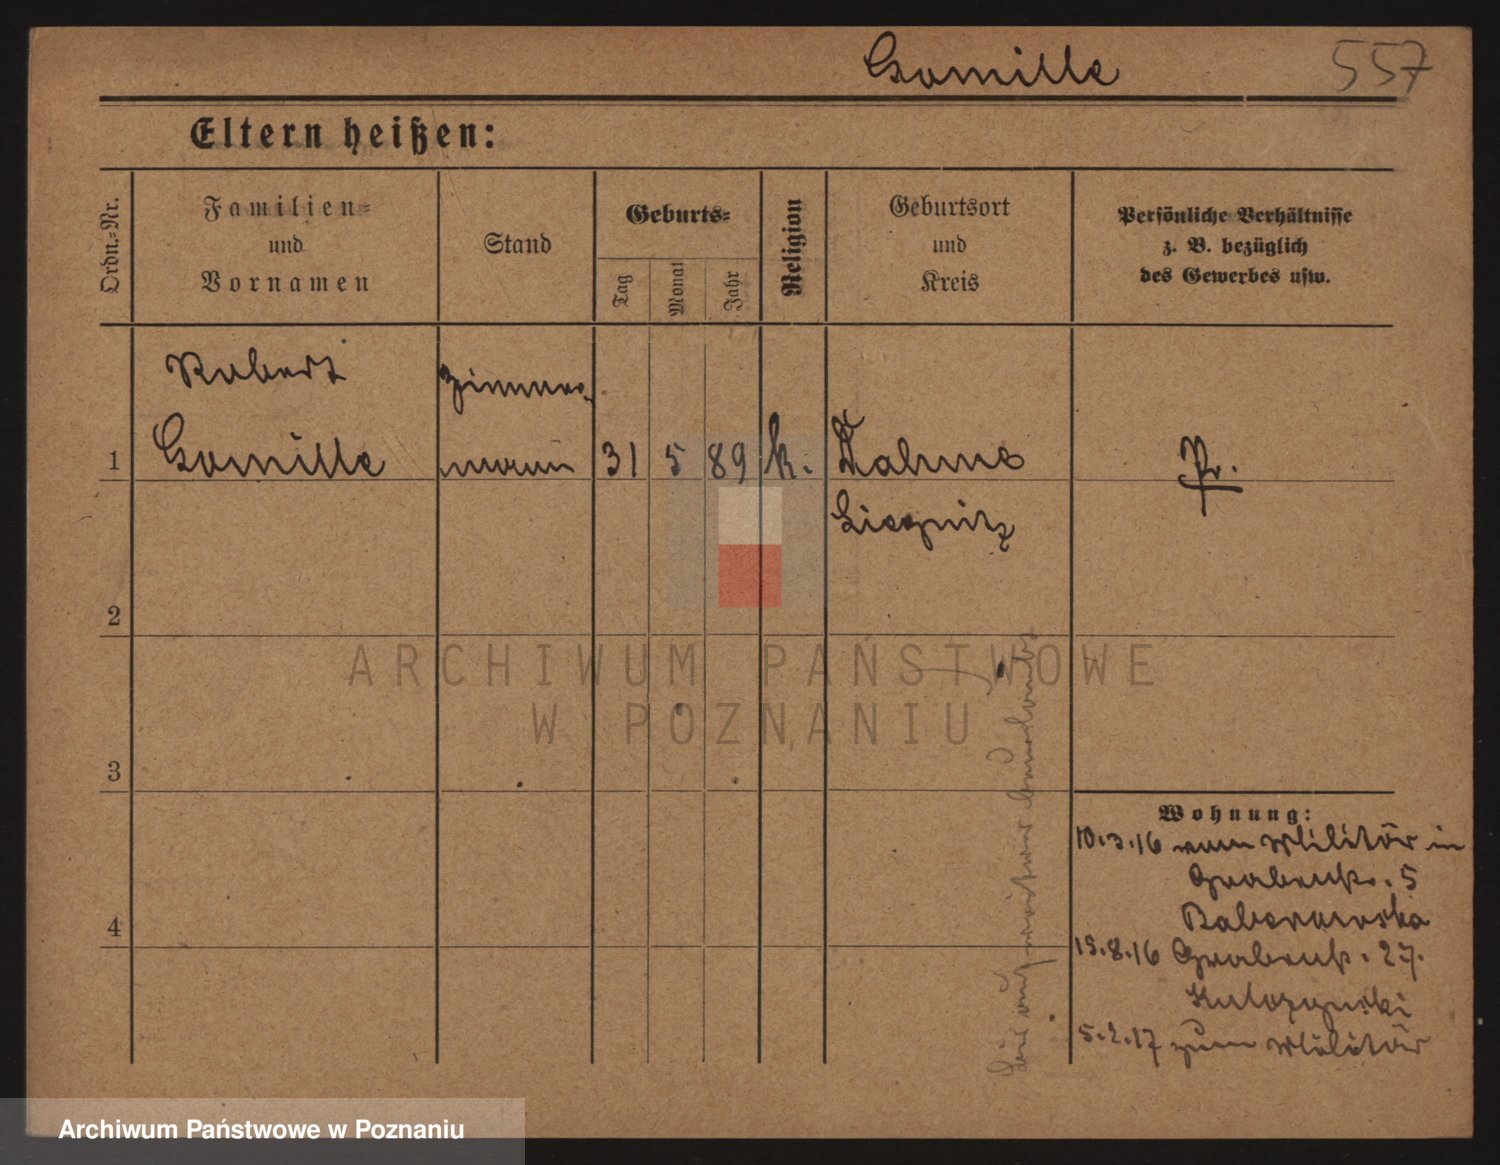 Gomille 557
Eltern heißen:
Ordn.-Nr.
Familien-
und
Vornamen
Stand
Geburts-
Tag
Monat
Jahr
Religion
Geburtsort
und
Kreis
Persönliche Verhältnisse
z. B. bezüglich
des Gewerbes usw.
Robert Zimmer-
1 Gomille mann 31 5 89 k. Dahme Pr.
Liegnitz
2
3
4
Wohnung:
10.3.16 vom Militär in
Grabenstr. 5
Baberowska
15.8.16 Grabenstr. 27.
5.2.17 zum Militär
ARCHIWUM PAŃSTWOWE
W POZNANIU
Archiwum Państwowe w Poznaniu